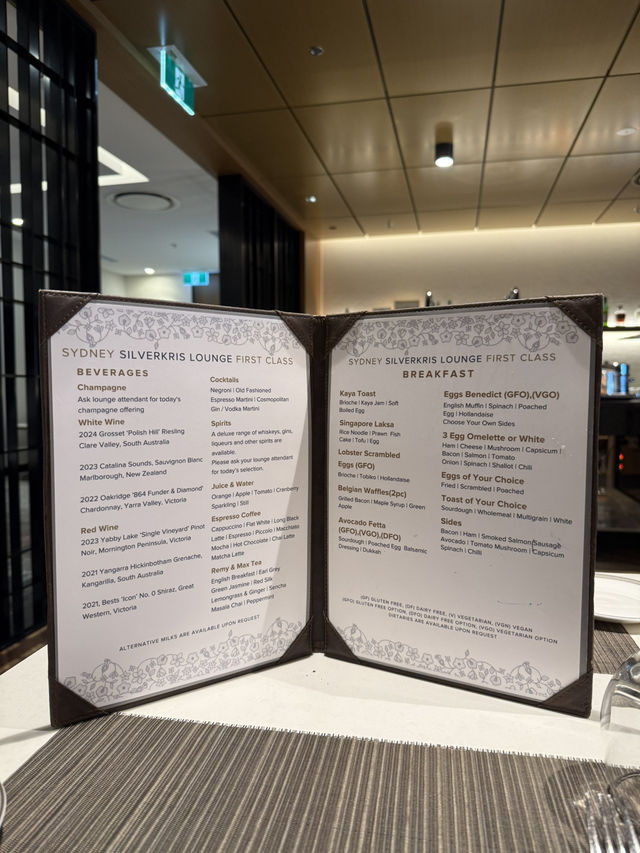 SYDNEY SILVERKRIS LOUNGE FIRST CLASS
BEVERAGES
Champagne
Ask lounge attendant for today's
champagne offering
White Wine
2024 Grosset 'Polish Hill' Riesling
Clare Valley, South Australia
2023 Catalina Sounds, Sauvignon Blanc
Marlborough, New Zealand
2022 Oakridge '864 Funder & Diamond'
Chardonnay, Yarra Valley, Victoria
Red Wine
2023 Yabby Lake 'Single Vineyard' Pinot
Noir, Mornington Peninsula, Victoria
2021 Yangarra Hickinbotham Grenache,
Kangarilla, South Australia
2021, Bests 'Icon' No. 0 Shiraz, Great
Western, Victoria
Cocktails
Negroni | Old Fashioned
Espresso Martini | Cosmopolitan
Gin / Vodka Martini
Spirits
A deluxe range of whiskeys, gins,
liqueurs and other spirits are
available.
Please ask your lounge attendant
for today's selection.
Juice & Water
Orange | Apple | Tomato | Cranberry
Sparkling | Still
Espresso Coffee
Cappuccino | Flat White | Long Black
Latte | Espresso | Piccolo | Macchiato
Mocha | Hot Chocolate | Chai Latte
Matcha Latte
Remy & Max Tea
English Breakfast | Earl Grey
Green Jasmine | Red Silk
Lemongrass & Ginger | Sencha
Masala Chai | Peppermint
ALTERNATIVE MILKS ARE AVAILABLE UPON REQUEST
SYDNEY SILVERKRIS LOUNGE FIRST CLASS
BREAKFAST
Kaya Toast
Brioche | Kaya Jam | Soft
Boiled Egg
Singapore Laksa
Rice Noodle | Prawn Fish
Cake | Tofu | Egg
Lobster Scrambled
Eggs (GFO)
Brioche | Tobiko | Hollandaise
Belgian Waffles(2pc)
Grilled Bacon | Maple Syrup | Green
Apple
Avocado Fetta
(GFO),(VGO),(DFO)
Sourdough | Poached Egg Balsamic
Dressing | Dukkah
Eggs Benedict (GFO),(VGO)
English Muffin | Spinach | Poached
Egg | Hollandaise
Choose Your Own Sides
3 Egg Omelette or White
Ham | Cheese | Mushroom | Capsicum |
Bacon | Salmon | Tomato
Onion | Spinach | Shallot | Chili
Eggs of Your Choice
Fried | Scrambled | Poached
Toast of Your Choice
Sourdough | Wholemeal | Multigrain | White
Sides
Bacon | Ham | Smoked Salmon|Sausage
Avocado | Tomato Mushroom | Capsicum
Spinach | Chilli
(GF) GLUTEN FREE, (DF) DAIRY FREE, (V) VEGETARIAN, (VGN) VEGAN
(GFO) GLUTEN FREE OPTION, (DFO) DAIRY FREE OPTION, (VGO) VEGETARIAN OPTION
DIETARIES ARE AVAILABLE UPON REQUEST